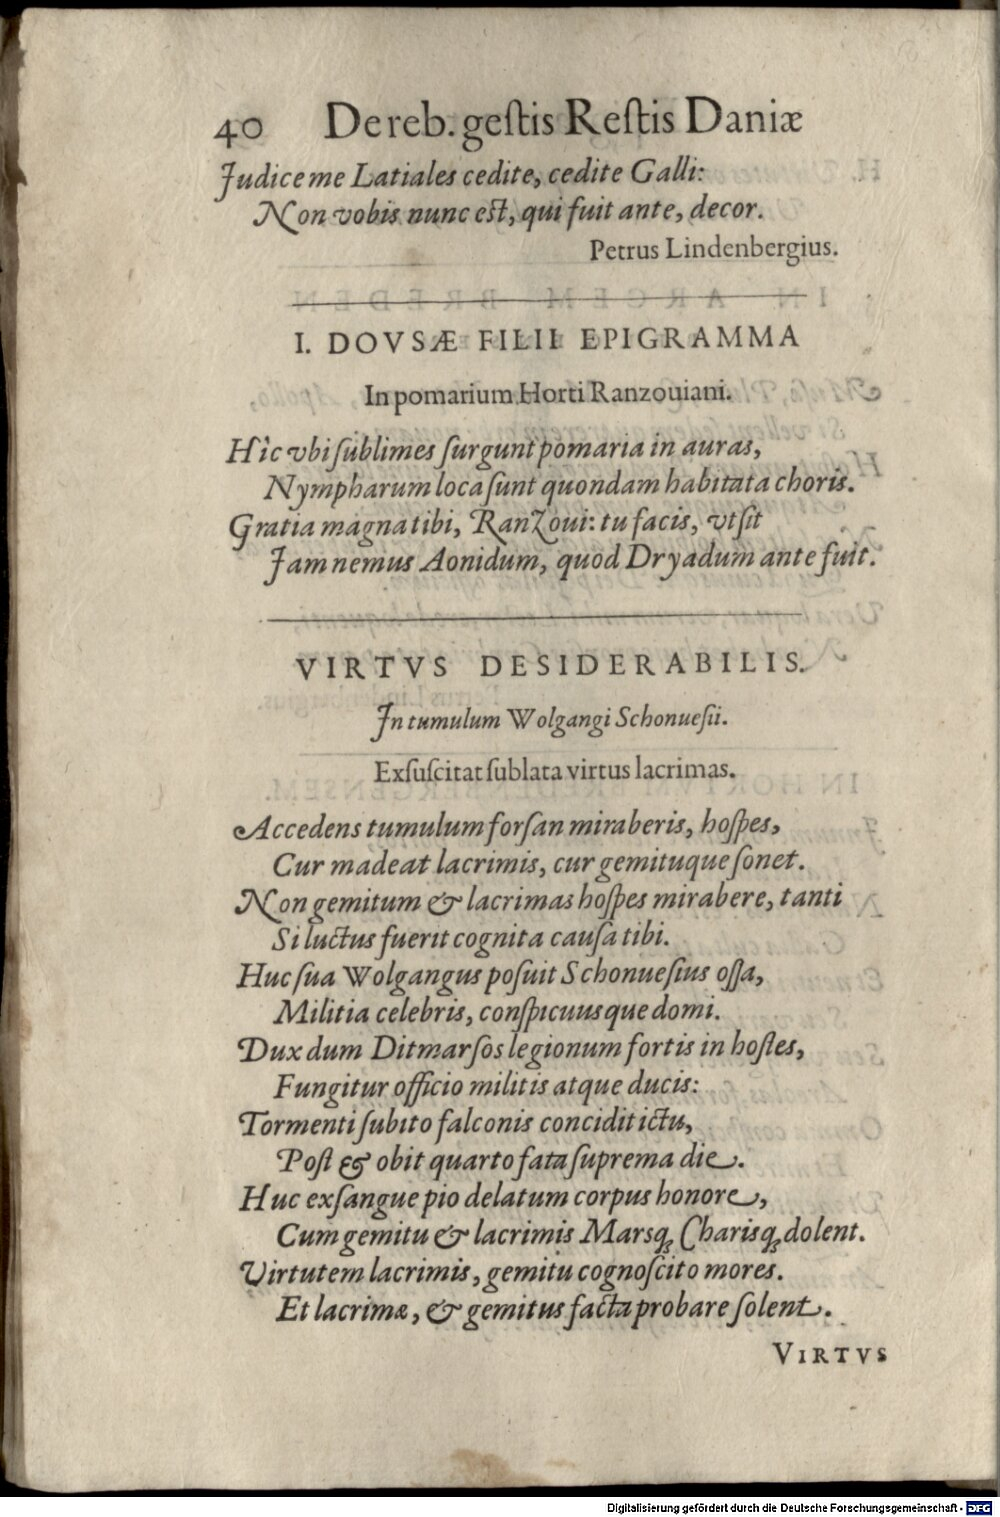 40 De reb. geſtis Reſtis Daniæ
Judice me Latiales cedite, cedite Galli:
Non vobis nunc eſt, qui fuit ante, decor.
Petrus Lindenbergius.
I. DOVSÆ FILII EPIGRAMMA
In pomarium Horti Ranzouiani.
Hîc vbi ſublimes ſurgunt pomaria in auras,
Nympharum loca ſunt quondam habitata choris.
Gratia magna tibi, Ranzoui: tu facis, vt ſit
Jam nemus Aonidum, quod Dryadum ante fuit.
VIRTVS DESIDERABILIS.
In tumulum Wolgangi Schonueſii.
Exſuſcitat ſublata virtus lacrimas.
Accedens tumulum forſan miraberis, hoſpes,
Cur madeat lacrimis, cur gemituque ſonet.
Non gemitum & lacrimas hoſpes mirabere, tanti
Si luctus fuerit cognita cauſa tibi.
Huc ſua Wolgangus poſuit Schonueſius oſſa,
Militia celebris, conſpicuusque domi.
Dux dum Ditmarſos legionum fortis in hoſtes,
Fungitur officio militis atque ducis:
Tormenti ſubito falconis concidit ictu,
Poſt & obit quarto fata ſuprema die.
Huc exſangue pio delatum corpus honore,
Cum gemitu & lacrimis Marsq; Charisq; dolent.
Virtutem lacrimis, gemitu cognoſcito mores.
Et lacrimæ, & gemitus facta probare ſolent.
VIRTVS
Digitalisierung gefördert durch die Deutsche Forschungsgemeinschaft - DFG